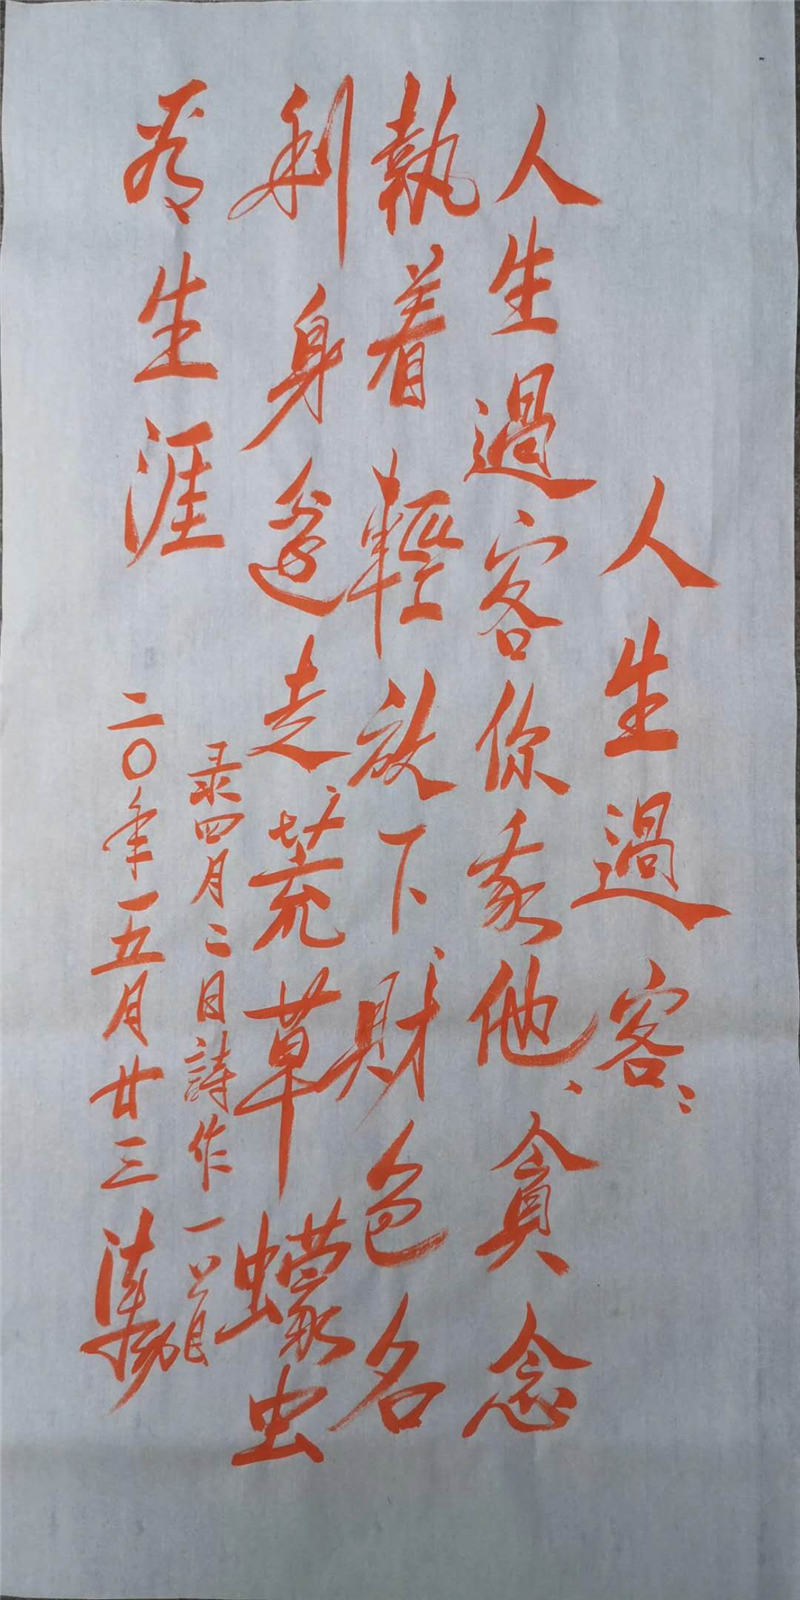 人生過客：
人生過客你我他、貪念
執着輕放下財色名
利身邊走荒草蠓虫
有生涯
录四月二日詩作一首
二〇年一五月廿三